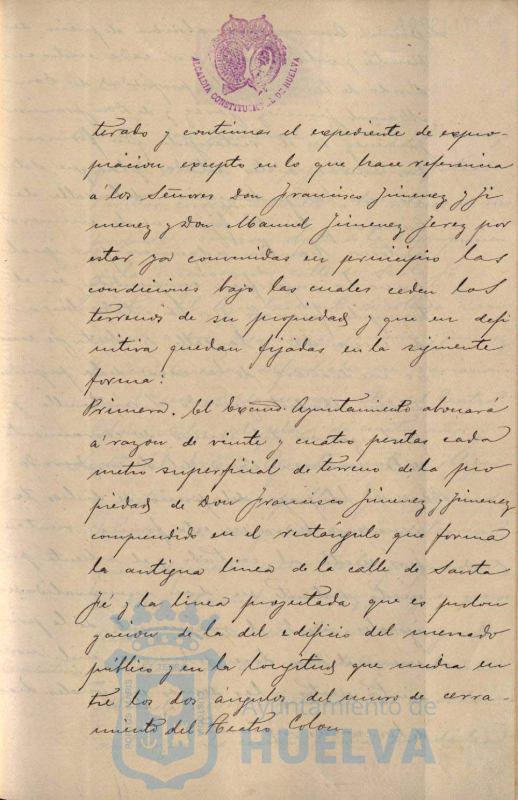 ALCALDÍA CONSTITUCIONAL DE HUELVA
terado y continuar el expediente de expro-
piacion excepto en lo que hace referencia
á los Señores Don Francisco Jimenez y Ji
menez y Don Manuel Jimenez Jerez por
estar ya convenidas en principio las
condiciones bajo las cuales ceden los
terrenos de su propiedad y que en defi
nitiva quedan fijadas en la siguiente
forma:
Primera. El Excmo. Ayuntamiento abonará
á razon de veinte y cuatro pesetas cada
metro superficial de terreno de la pro
piedad de Don Francisco Jimenez y Jimenez
comprendido en el rectángulo que forma
la antigua linea de la calle de Santa
Fé y la linea proyectada que es prolon
gacion de la del edificio del mercado
público y en la longitud que media en
tre los dos ángulos del muro de cerra
mento del Teatro Colon
Ayuntamiento de
HUELVA